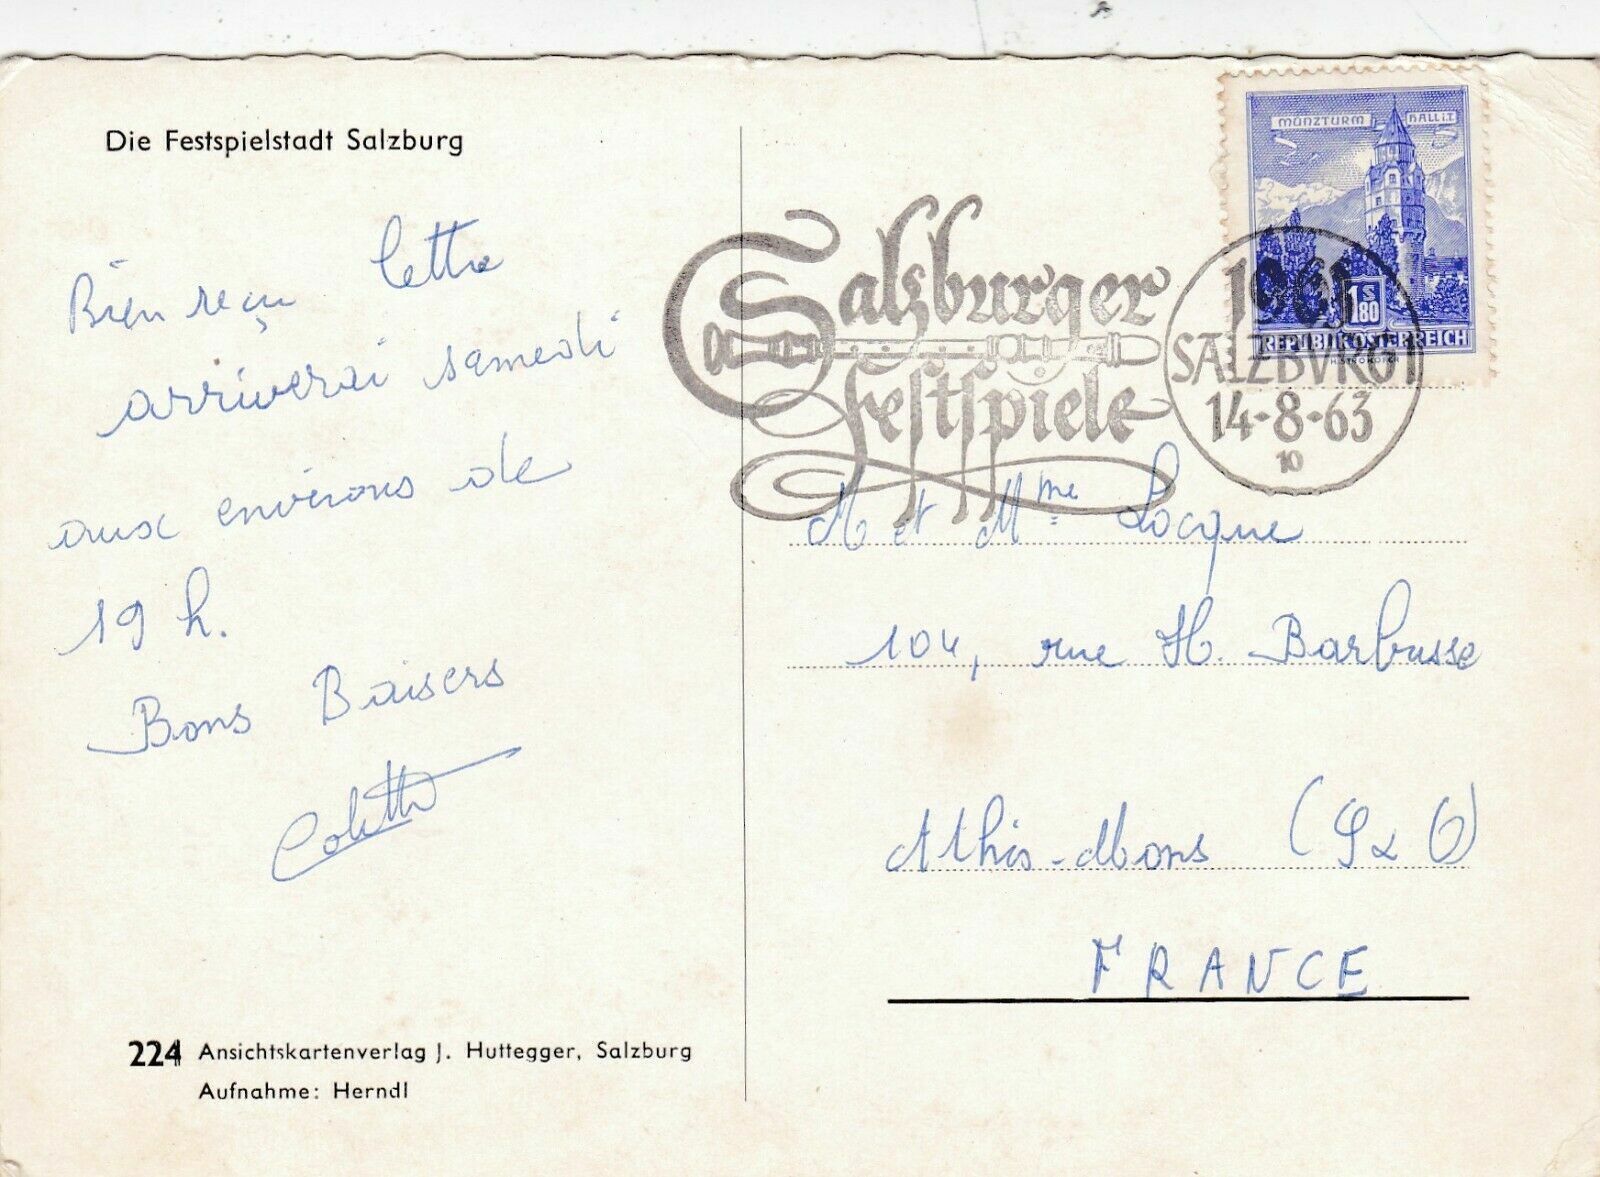 Die Festspielstadt Salzburg
Bien reçu lettre
arriverai samedi
aux environs de
19 h.
Bons Baisers
Colette
224 Ansichtskartenverlag J. Huttegger, Salzburg
Aufnahme: Herndl
MÜNZTURM HALL i.T.
1S80
REPUBLIK ÖSTERREICH
Salzburger
Festspiele
SALZBURG 1
14-8-63
10
M et Mme Locque
104, rue H. Barbusse
Athis-Mons (S & O)
FRANCE